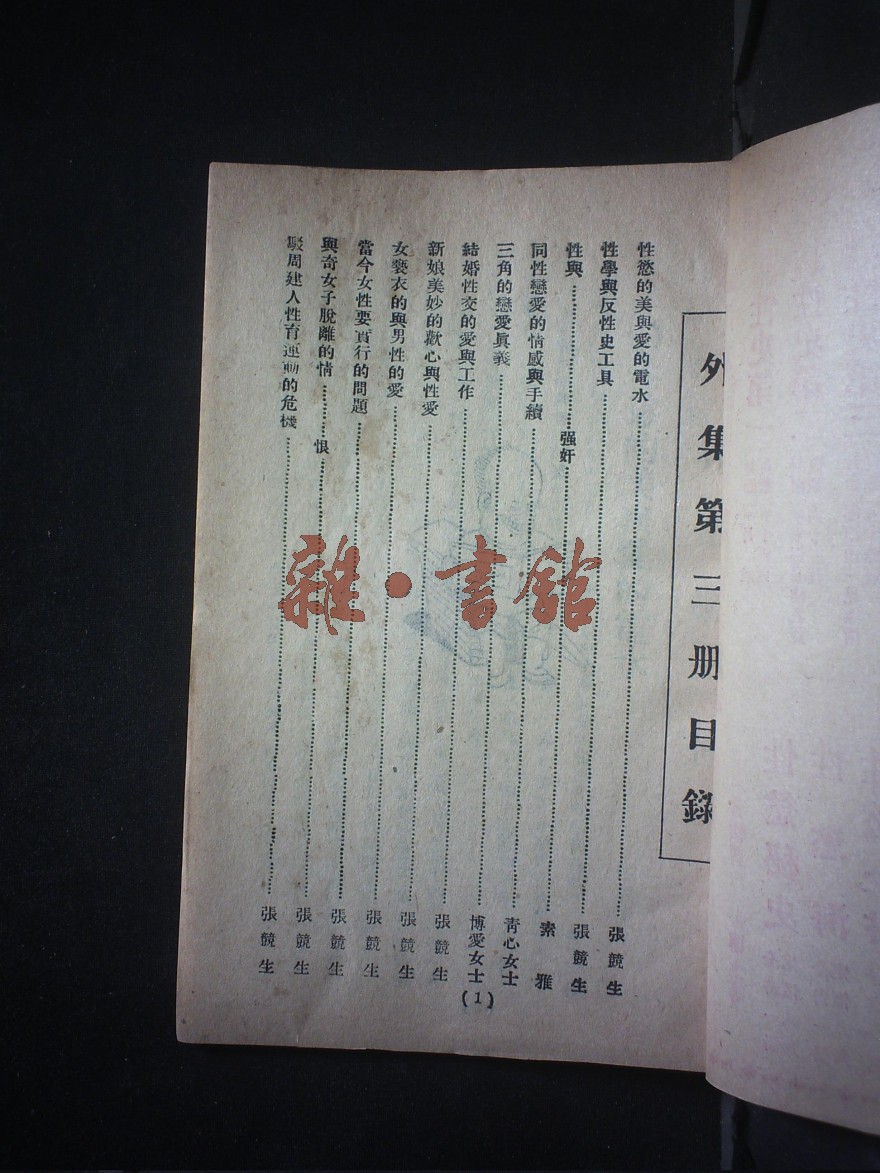 外集第三册目錄
性慾的美與愛的電水…………張競生
性學與反性史工具…………張競生
性與…………强奸…………素雅
同性戀愛的情感與手續…………青心女士
三角的戀愛眞義…………博愛女士
結婚性交的愛與工作…………張競生
新娘美妙的歡心與性愛…………張競生
女褻衣的與男性的愛…………張競生
當今女性要實行的問題…………張競生
與奇女子脫離的情…………恨…………張競生
駁周建人性育運動的危機…………張競生
(1)
雜·書館